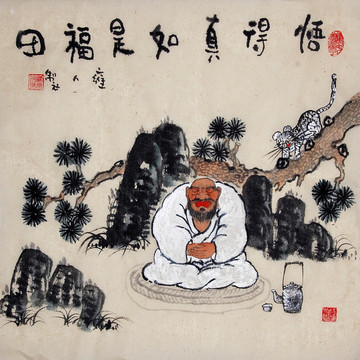 悟得真如是福田